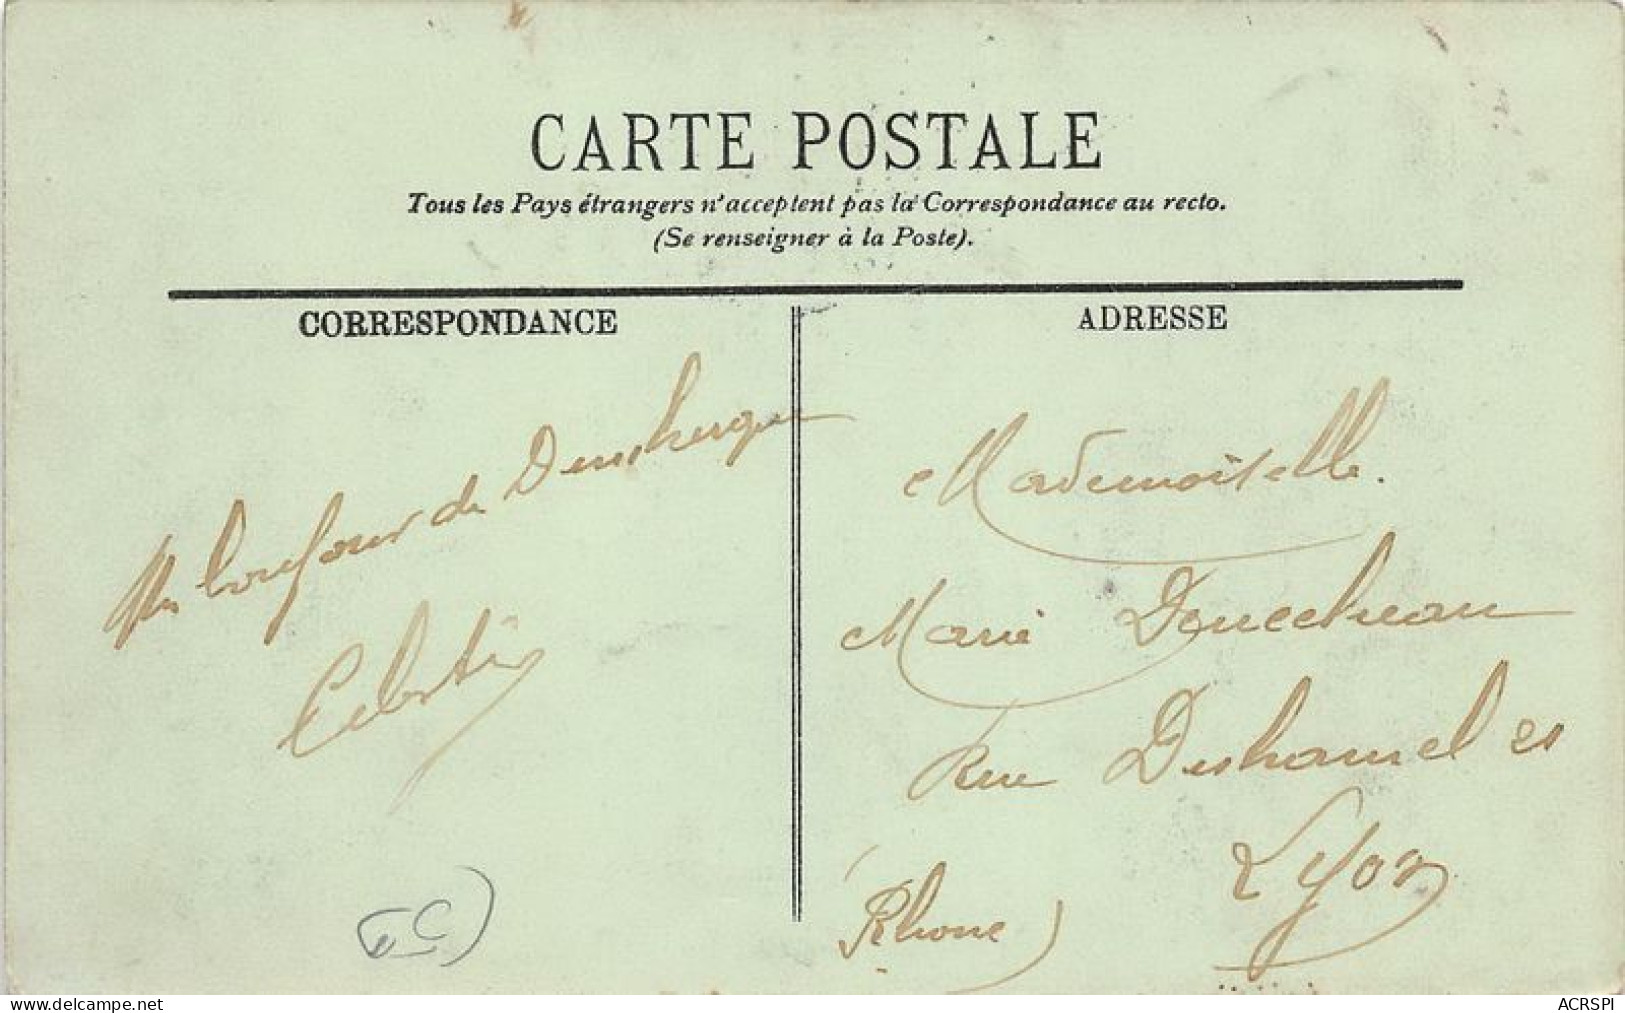 CARTE POSTALE
Tous les Pays étrangers n'acceptent pas la Correspondance au recto.
(Se renseigner à la Poste).
CORRESPONDANCE
ADRESSE
Un bonjour de Dunkerque
Célestin
Mademoiselle.
Marie
Rue Duhamel 21
Lyon
(Rhone)
www.delcampe.net
ACRSPI